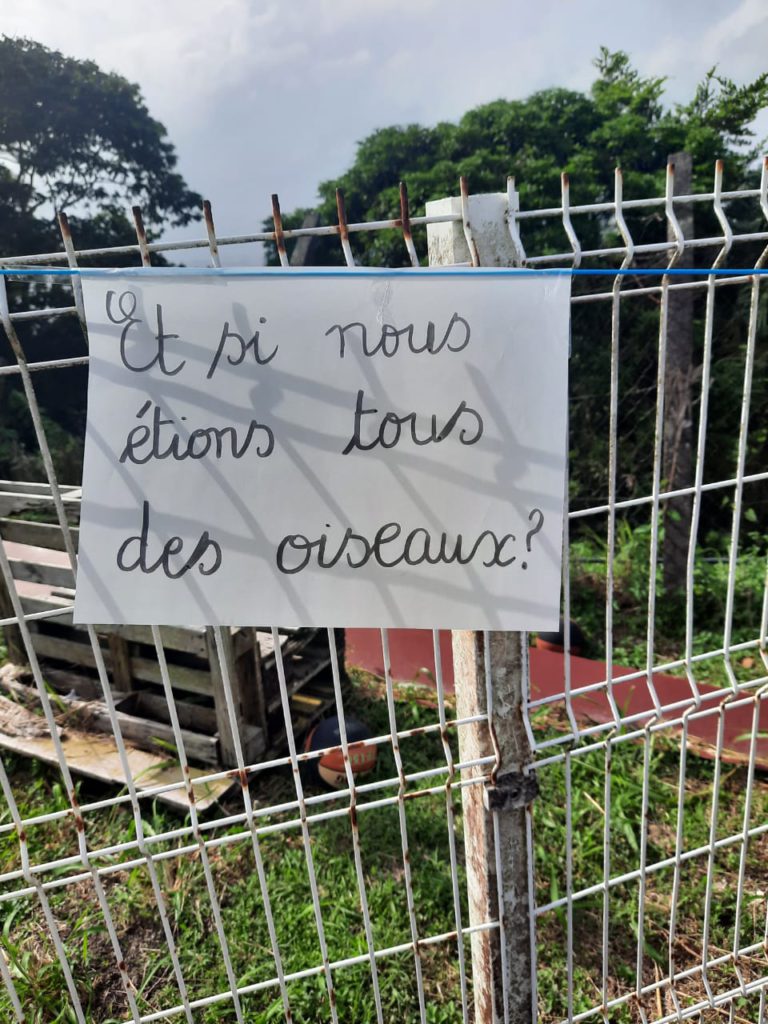 Et si nous
étions tous
des oiseaux?